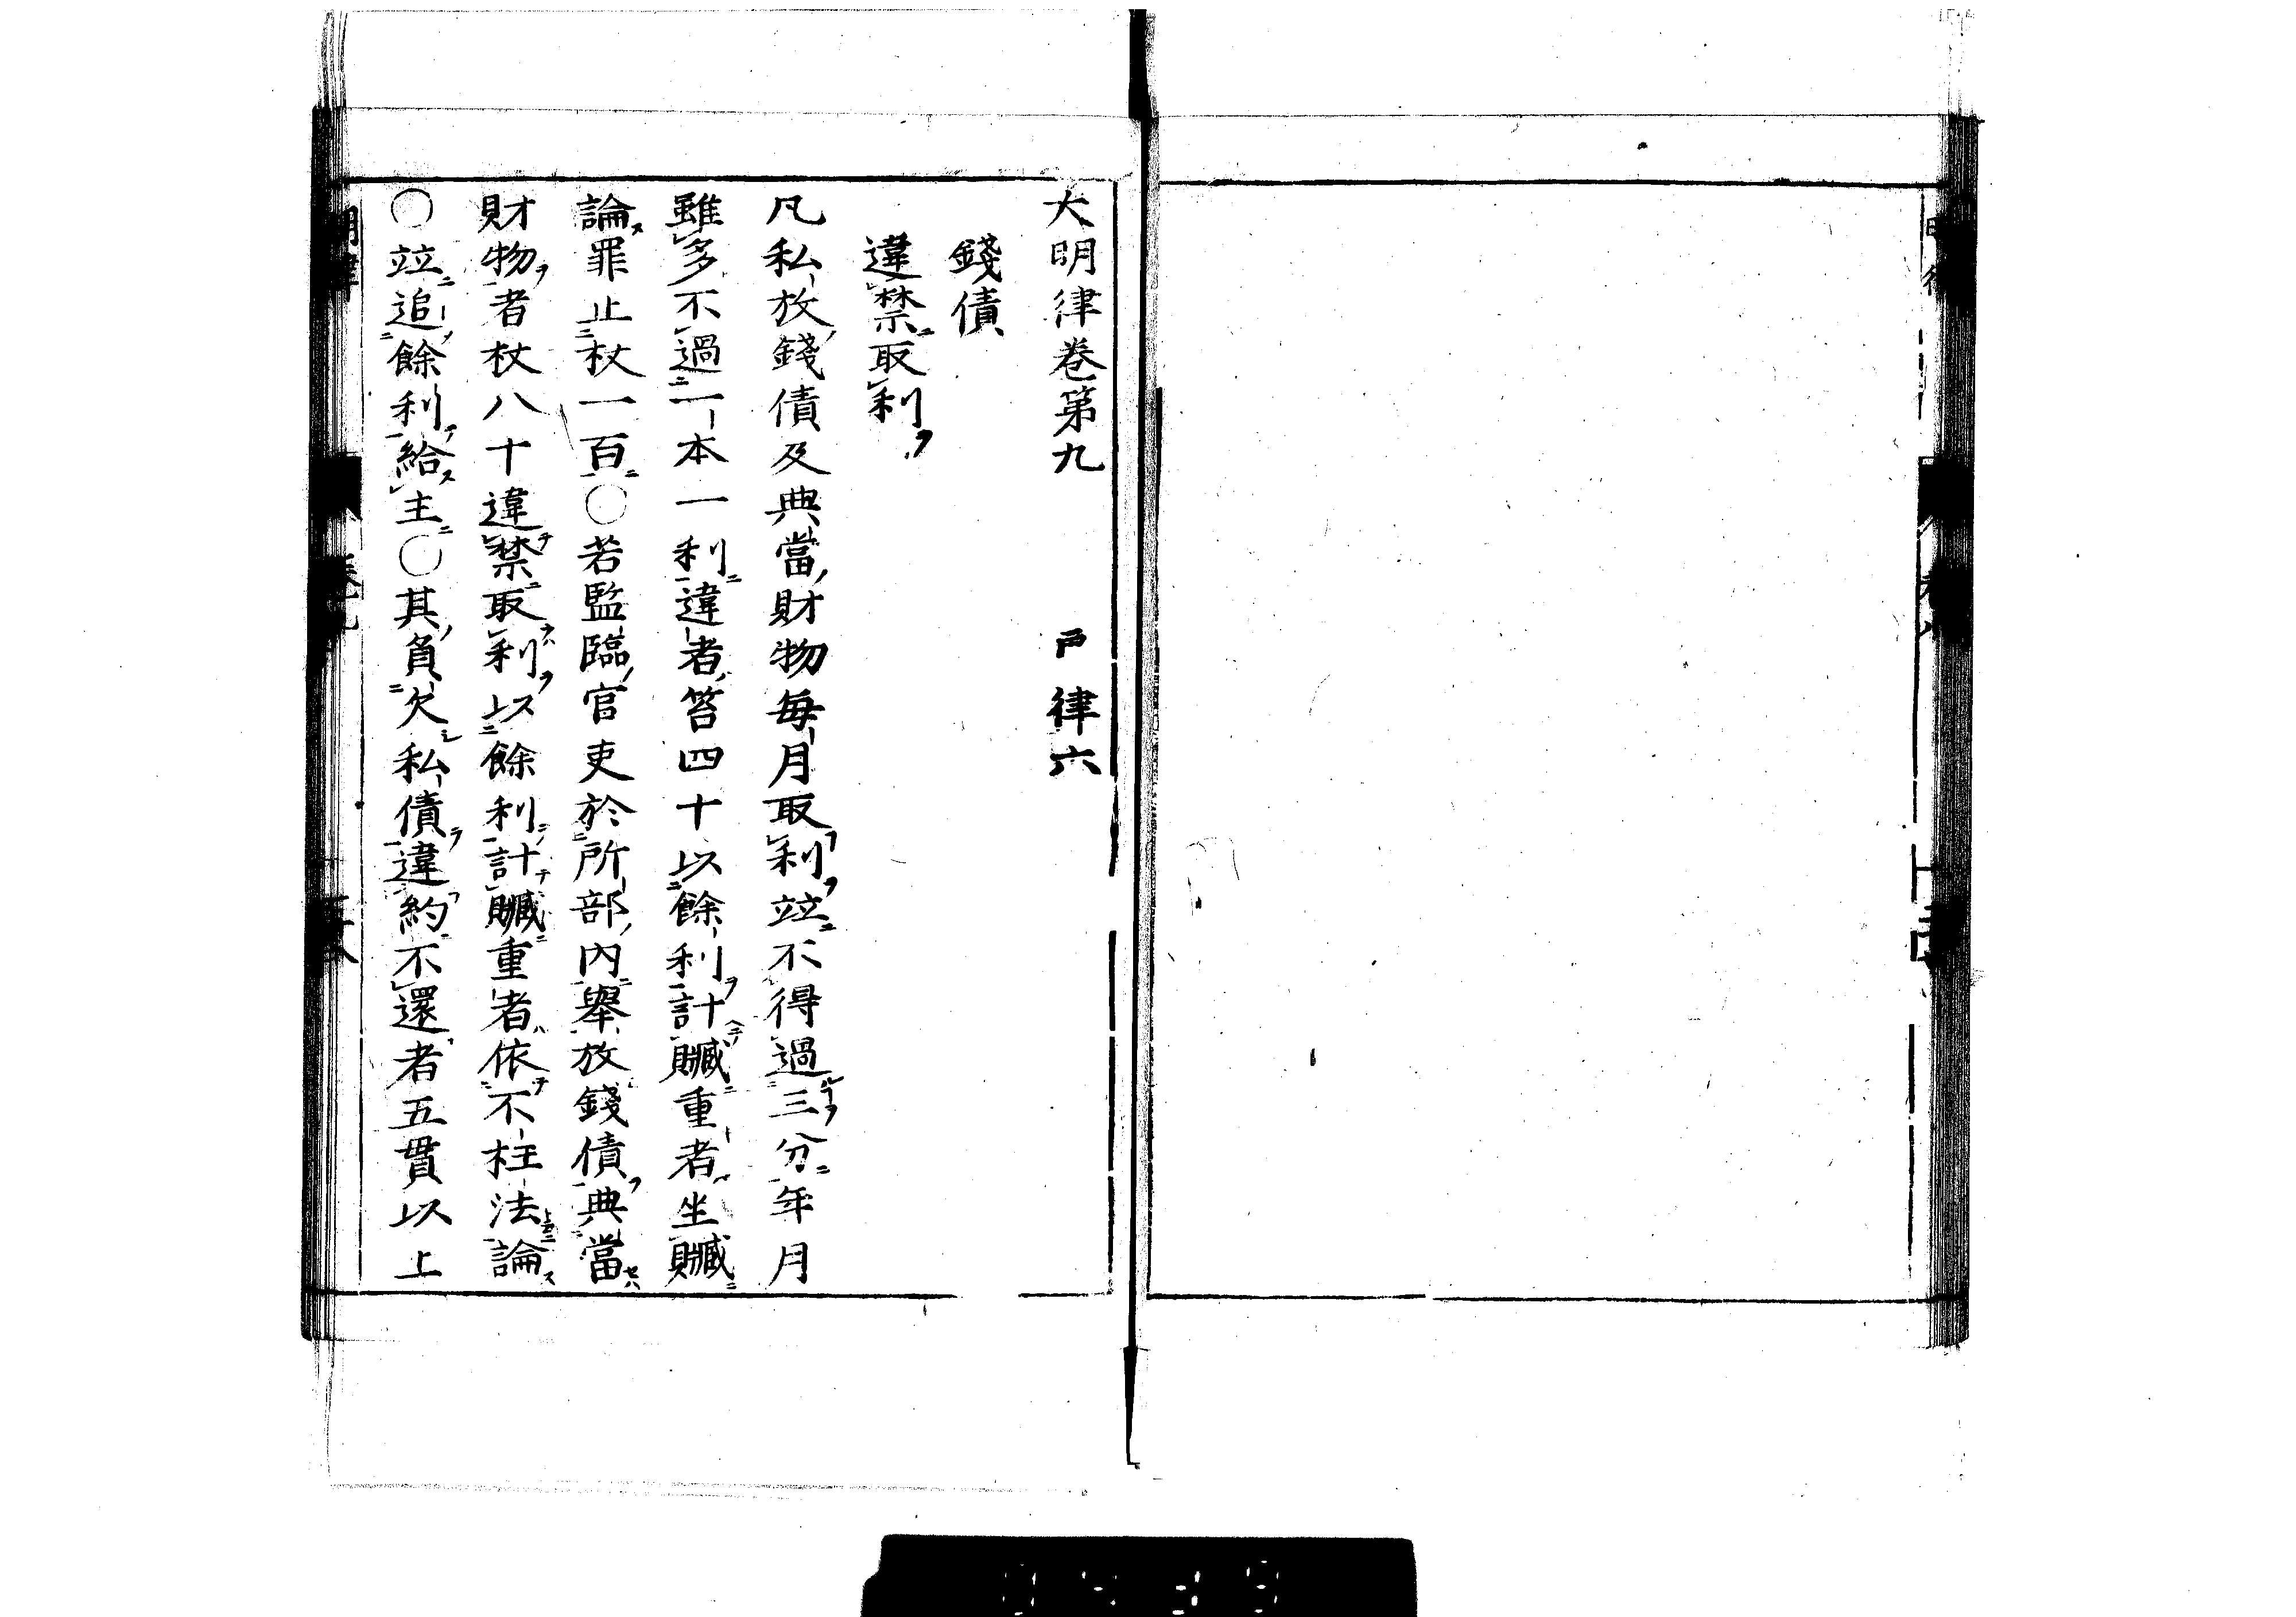 大明律卷第九　　戸律六
錢債
違禁取利
凡私放錢債及典當財物每月取利竝不得過三分年月
雖多不過一本一利違者笞四十以餘利計贓重者坐贓
論罪止杖一百○若監臨官吏於所部內舉放錢債典當
財物者杖八十違禁取利以餘利計贓重者依不枉法論
○竝追餘利給主○其負欠私債違約不還者五貫以上